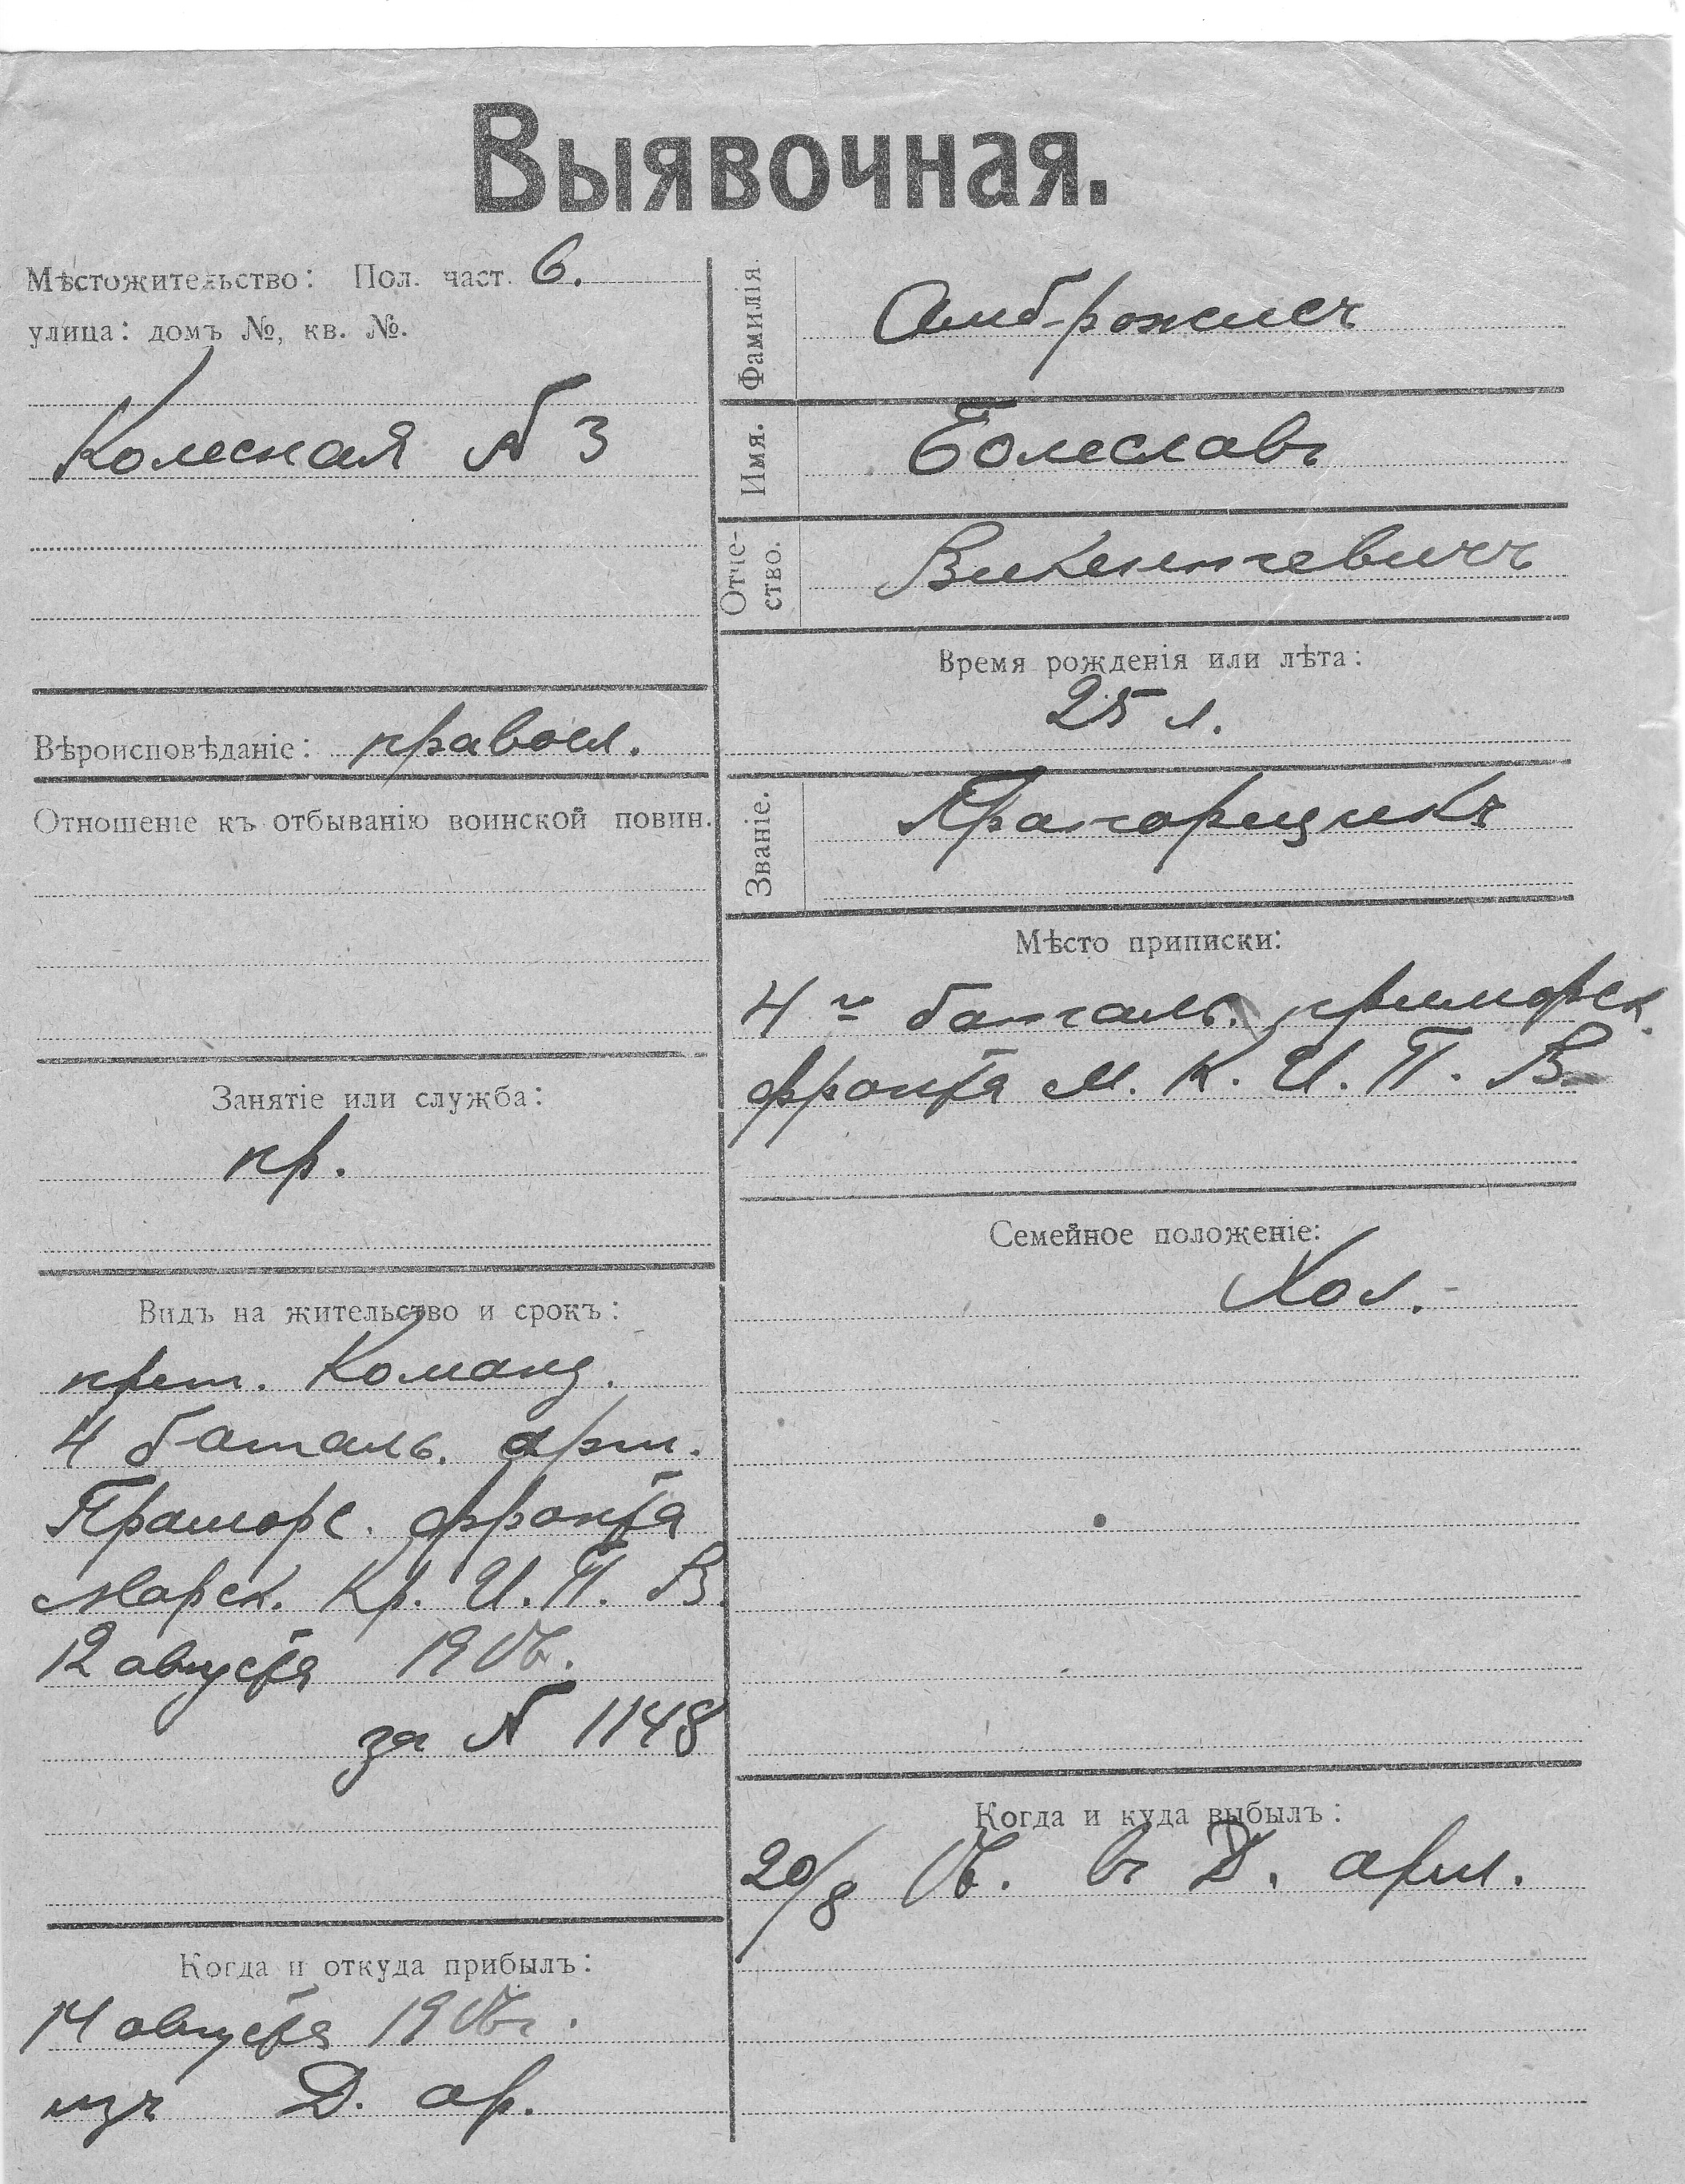 Выявочная.
Мѣстожительство: Пол. част. 6.
улица: домъ №, кв. №.
Колесная № 3
Вѣроисповѣданіе: правосл.
Отношеніе къ отбыванію воинской повин.
Занятіе или служба:
пр.
Видъ на жительство и срокъ:
Команд.
4 баталь. арт.
Приморс. фронта
Морск. Кр. И. П. В.
12 августа 19
за № 1148
Когда и откуда прибылъ:
14 августа 19
изъ Д. ар.
Фамилія.
Амброжисъ
Имя.
Болеславъ
Отче-
ство.
Викентьевичъ
Время рожденія или лѣта:
25 л.
Званіе.
Прапорщикъ
Мѣсто приписки:
4й баталь. приморск.
фронта М. К. И. П. В.
Семейное положеніе:
Хол.
Когда и куда выбылъ:
20/8 въ Д. арм.